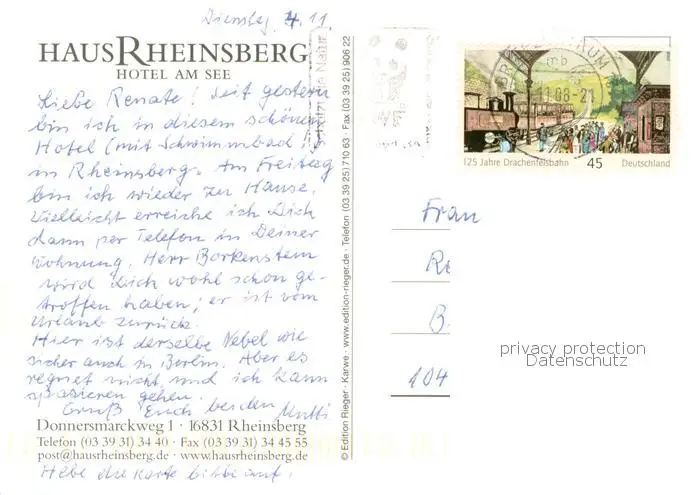 Dienstag, 4.11
HAUS RHEINSBERG
HOTEL AM SEE
Liebe Renate! Seit gestern
bin ich in diesem schönen
Hotel (mit Schwimmbad!)
in Rheinsberg. Am Freitag
bin ich wieder zu Hause.
Vielleicht erreiche ich Dich
dann per Telefon in Deiner
Wohnung. Herr Borkenstein
wird Dich wohl schon ge-
troffen haben; er ist vom
Urlaub zurück.
Hier ist derselbe Nebel wie
sicher auch in Berlin. Aber es
regnet nicht, und ich kann
spazieren gehen.
Gruß Euch beiden Mutti
Donnersmarckweg 1 · 16831 Rheinsberg
Telefon (03 39 31) 34 40 · Fax (03 39 31) 34 45 55
post@hausrheinsberg.de · www.hausrheinsberg.de
Hebe die Karte bitte auf.
© Edition Rieger · Karwe · www.edition-rieger.de · Telefon (03 39 25) 710 63 · Fax (03 39 25) 906 22
125 Jahre Drachenfelsbahn 45 Deutschland
mb
Frau
B
104
privacy protection
Datenschutz